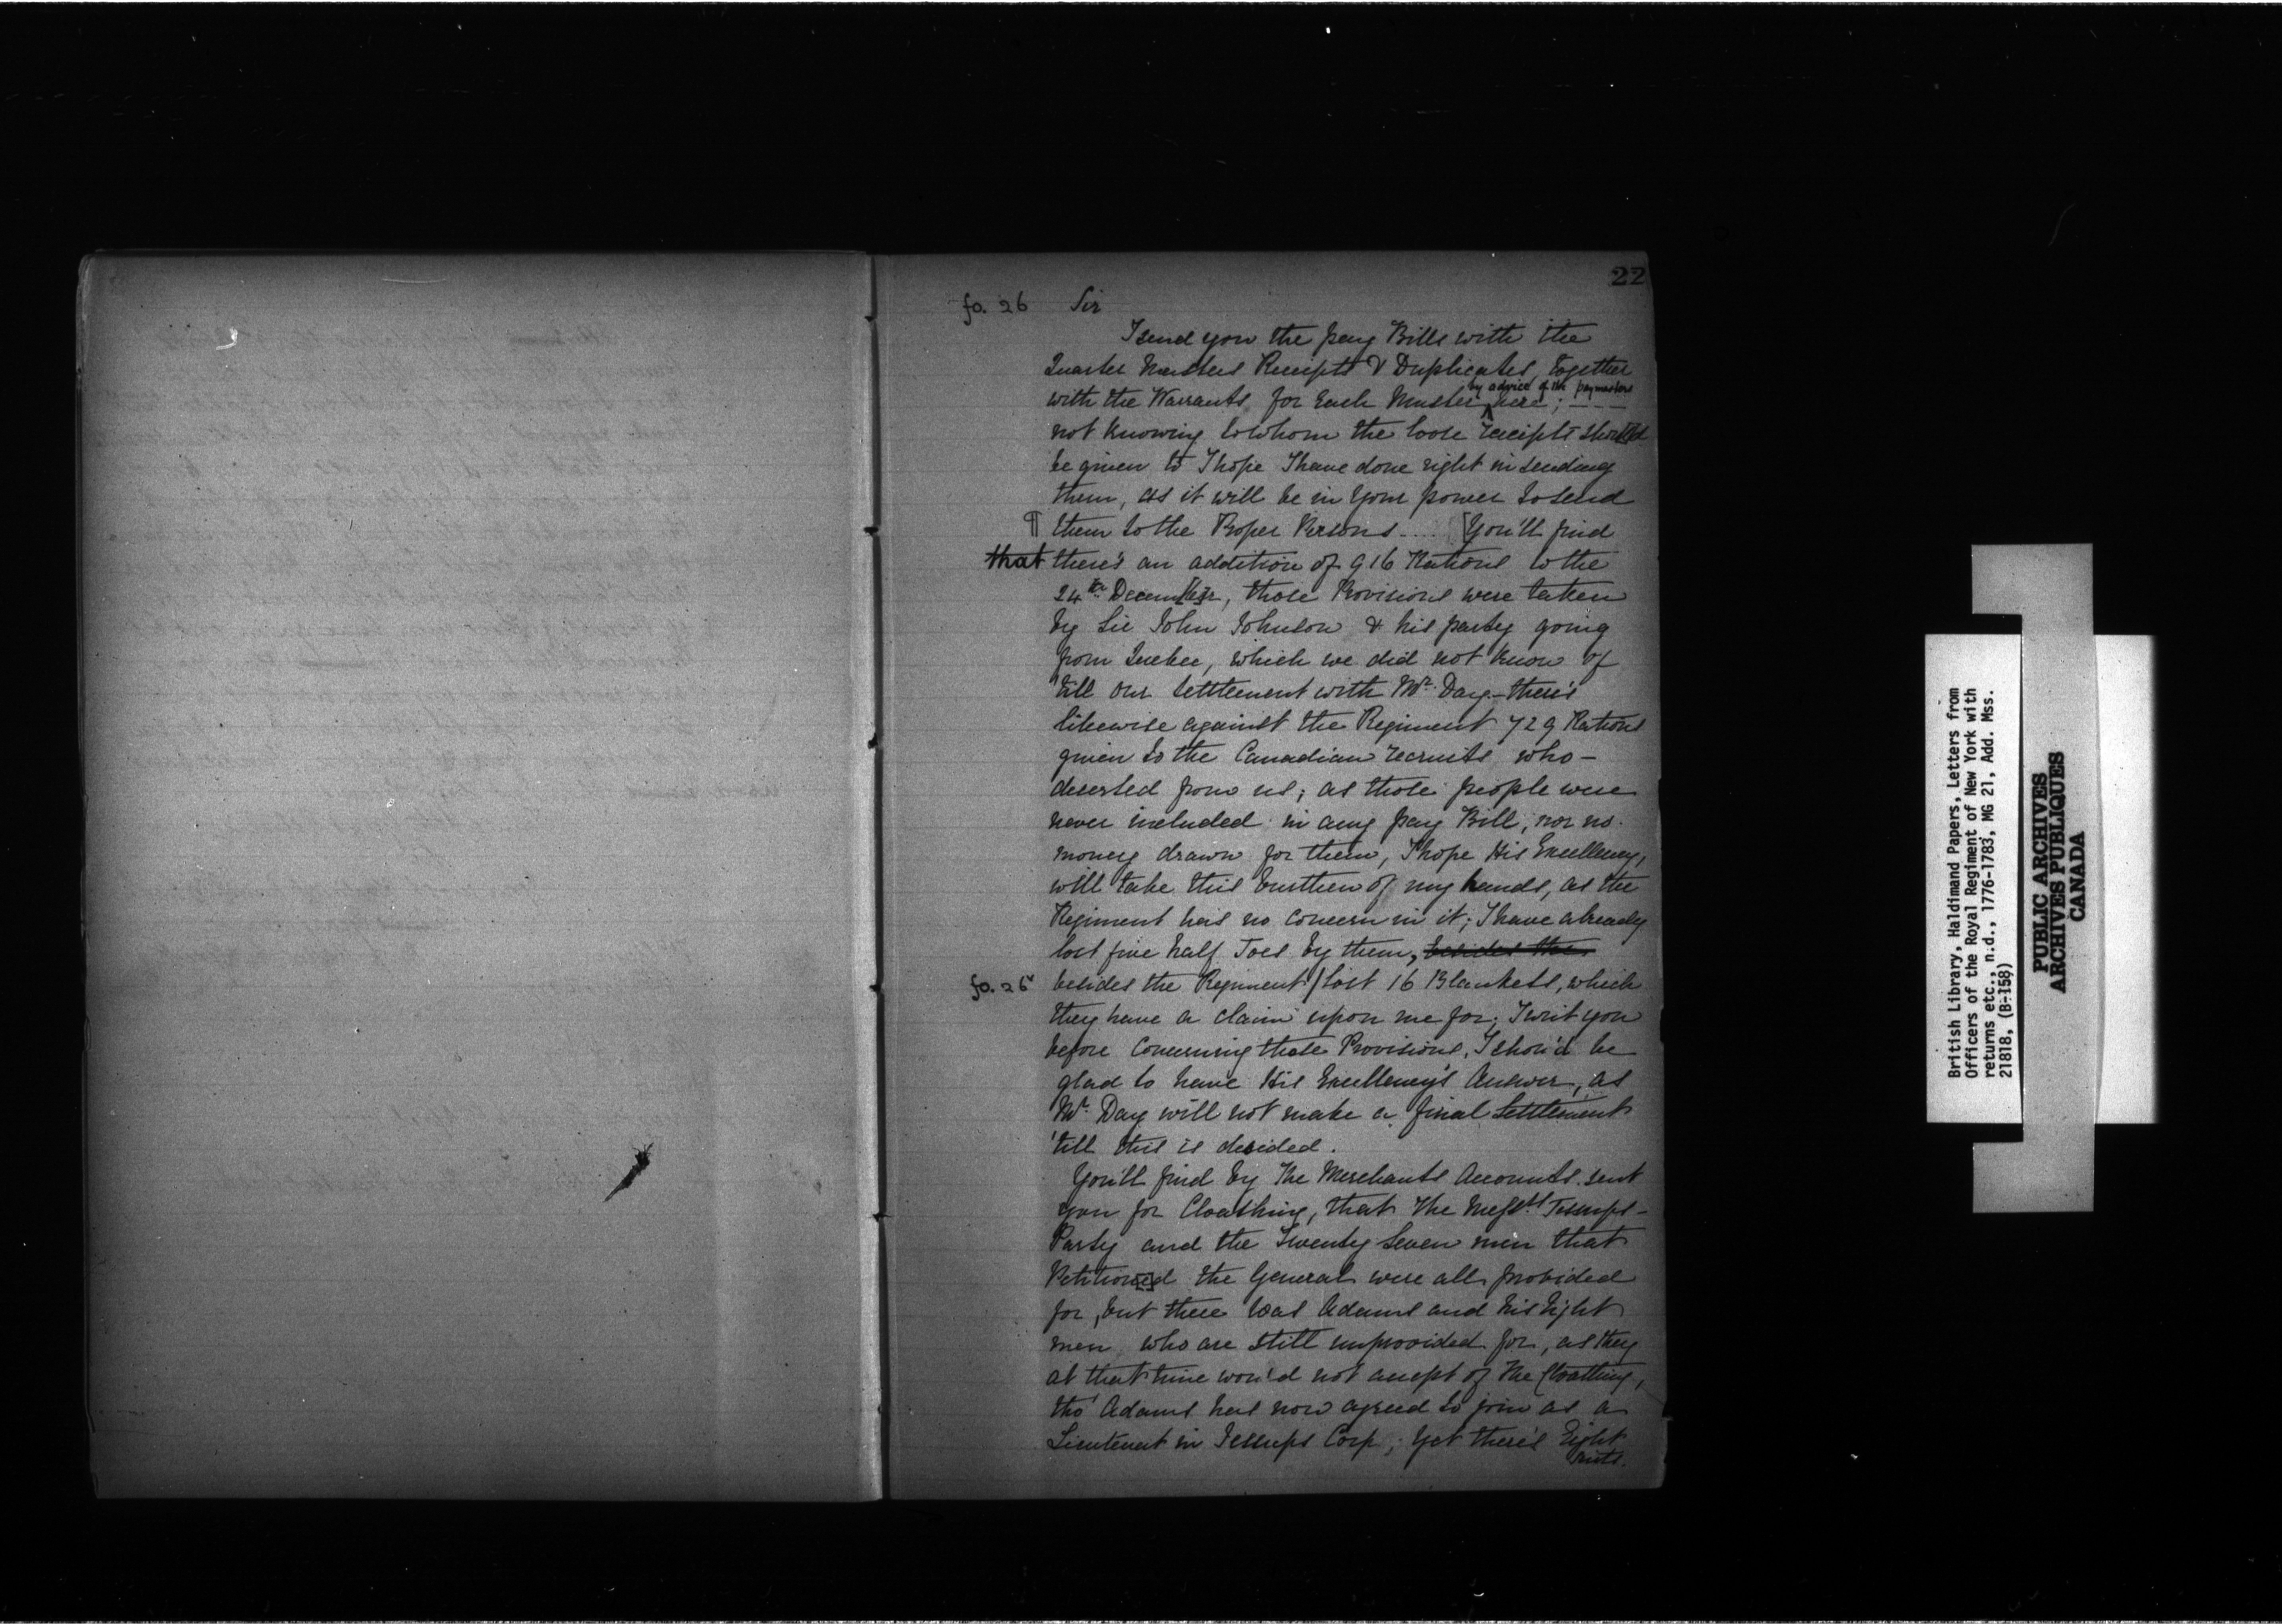 22
fo. 26 Sir
I send you the pay Bills with the
Quarter Masters Receipts & Duplicates, Together
with the Warrants for Each Muster by advice of the paymasters here; ---
not knowing to whom the loose receipts should
be given to I hope I have done right in sending
them, as it will be in your power to send
¶ them to the Proper Persons .... [You'll find
that there's an addition of 916 Rations to the
24th Decem[be]r, those Provisions were taken
by Sir John Johnson & his party going
from Quebec, which we did not know of
'till our settlement with Mr. Day - there's
likewise against the Regiment 729 Rations
given to the Canadian recruits who -
deserted from us; as those people were
never included in any pay Bill, nor no
money drawn for them, I hope His Excellency,
will take this Burthen of my hands, as the
Regiment has no concern in it; I have already
lost five half Joes by them, besides the
fo. 26v besides the Regiment / lost 16 Blankets, which
they have a claim upon me for; I writ you
before Concerning those Provisions, I shou'd be
glad to have His Excellency's Answer, as
Mr. Day will not make a final Settlement
'till this is decided.
You'll find by The Merchants Accounts sent
you for Cloathing, that The Messrs Jessups -
Party and the Twenty Seven men that
Petition[e]d the General were all provided
for, but there was Adams and his Eight
men who are still unprovided for, as they
at that time wou'd not accept of The Cloathing,
tho' Adams has now agreed to join as a
Lieutenant in Jessups Corp; yet there's Eight
suits.
British Library, Haldimand Papers, Letters from
Officers of the Royal Regiment of New York with
returns etc., n.d., 1776-1783, MG 21, Add. Mss.
21818, (B-158)
PUBLIC ARCHIVES
ARCHIVES PUBLIQUES
CANADA